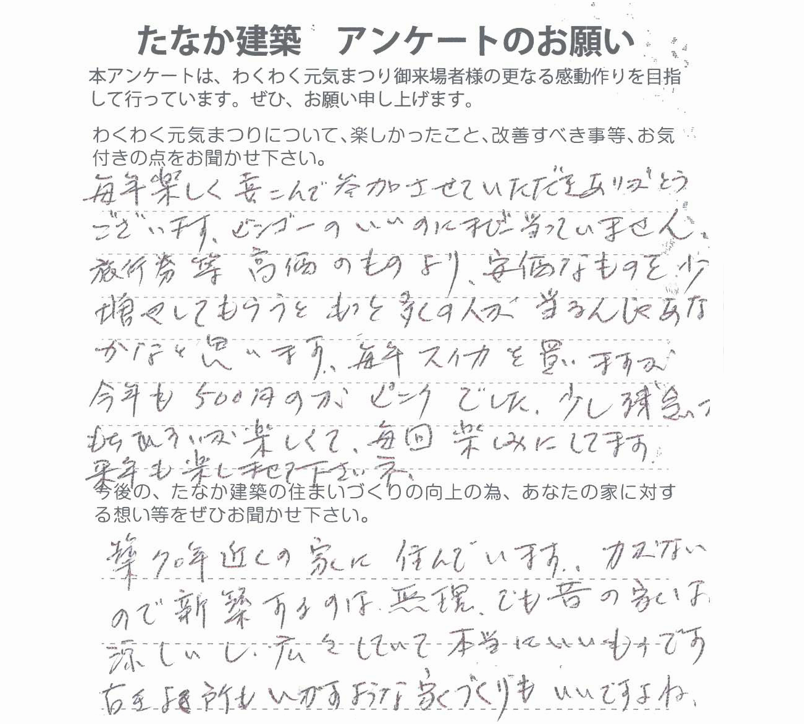 たなか建築　アンケートのお願い
本アンケートは、わくわく元気まつり御来場者様の更なる感動作りを目指
して行っています。ぜひ、お願い申し上げます。
わくわく元気まつりについて、楽しかったこと、改善すべき事等、お気
付きの点をお聞かせ下さい。
毎年楽しく喜こんで参加させていただきありがとう
ございます。ビンゴーのいいのにまだ当っていません。
旅行券等 高価のものより、安価なものを少
増やしてもらうともっと多くの人が当るんじゃあな
かなと思います。毎年スイカを買いますが
今年も500円のが ピンク でした。少し残念
もちひろいが楽しくて、毎回 楽しみにしてます。
来年も楽しませて下さいネ。
今後の、たなか建築の住まいづくりの向上の為、あなたの家に対す
る想い等をぜひお聞かせ下さい。
築70年近くの家に 住んでいます。カネがない
ので新築するのは無理、でも昔の家いは
涼しいし、広々としていて本当にいいものです
古き良き所もいかすような家づくりもいいですよね、